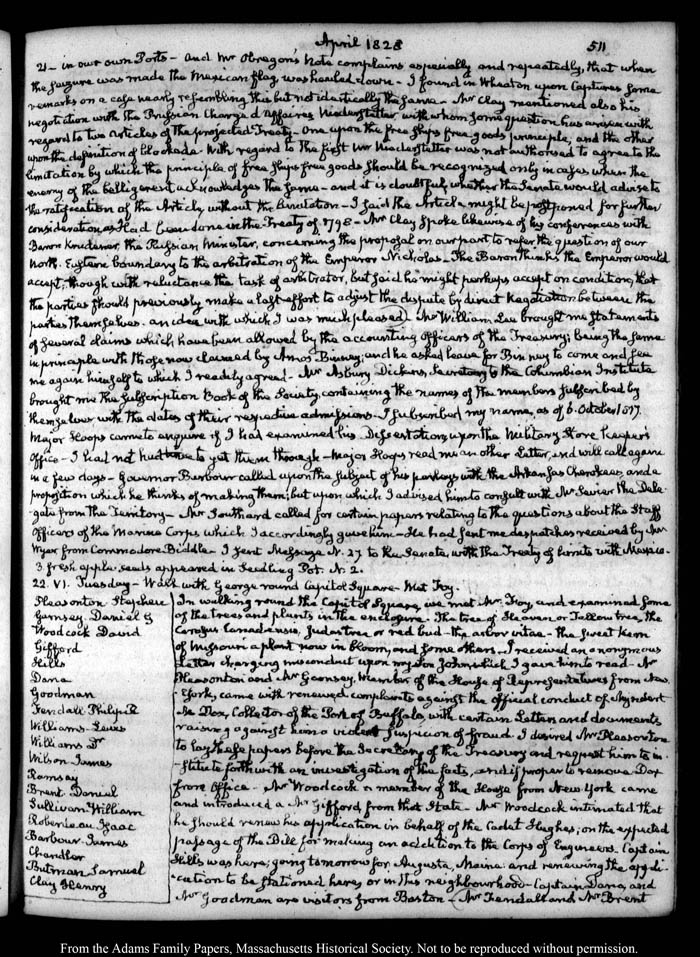 April 1828 511
21 - in our own Ports - And Mr Obregon's Note complains especially and repeatedly, that when
the seizure was made the Mexican flag, was hauled down - I found in Wheaton upon Captures some
remarks on a case nearly resembling this but not identically the same - Mr Clay mentioned also his
negotiation with the Prussian Chargé d'Affaires Niederstetter, with whom some question has arisen with
regard to two Articles of the projected Treaty - One upon the free ships free goods principle, and the other
upon the definition of blockade. With regard to the first Mr Niederstetter was not authorised to agree to the
limitation by which the principle of free ships free goods should be recognized only in cases when the
enemy of the belligerent acknowledges the same - and it is doubtful whether the Senate would advise to
the ratification of the Article without the limitation - I said the Article might be postponed for further
consideration, as had been done in the Treaty of 1798 - Mr Clay spoke likewise of his conferences with
Baron Krudener, the Russian Minister, concerning the proposal on our part to refer the question of our
North-Eastern boundary to the arbitration of the Emperor Nicholas - The Baron thinks the Emperor would
accept, though with reluctance the task of arbitrator, but said he might perhaps accept on condition, that
the parties should previously make a last effort to adjust the dispute by direct Negotiation between the
parties themselves. an idea with which I was much pleased. Mr William Lee brought me statements
of several claims which have been allowed by the accounting Officers of the Treasury; being the same
in principle with those now claimed by Amos Binney; and he asked leave for Binney to come and see
me again himself to which I readily agreed - Mr Asbury Dickins, Secretary to the Columbian Institute
brought me the subscription Book of the Society, containing the names of the members subscribed by
themselves with the dates of their respective admissions - I subscribed my name, as of 6. October 1817.
Major Hoops came to enquire if I had examined his Dissertation, upon the Military Store keeper's
Office - I had not had time to get them through - Major Hoops read me another Letter, and will call again
in a few days - Governor Barbour called upon the subject of his parleys with the Arkansas Cherokees, and a
proposition which he thinks of making them; but upon which I advised him to consult with Mr Sevier the Dele-
gate from the Territory - Mr Southard called for certain papers relating to the questions about the Staff
Officers of the Marine Corps which I accordingly gave him - He had sent me despatches received by
Wyer from Commodore Biddle - I sent Message N. 27 to the Senate, with the Treaty of limits with Mexico.
3 fresh apple-seeds appeared in Seedling Pot. N. 2.
22. VI. Tuesday - Walk with George round Capitol Square - Met Foy.
Pleasonton Stephen
Garnsey. Daniel G
Woodcock David
Gifford
Hills
Dana
Goodman
Fendall Philip R
Williams Lewis
Williams Dr
Wilson James
Ramsay
Brent. Daniel
Sullivan William
Roberdeau Isaac
Barbour James
Chandler
Butman Samuel
Clay Henry
In walking round the Capitol Square, we met Mr Foy, and examined some
of the trees and plants in the enclosure. The tree of Heaven or Tallow tree, the
Cercis Canadensis, Judas tree or red bud - the arbor vitae - the
of Missouri a plant now in bloom, and some others. I received an anonymous
Letter charging misconduct upon my son John which I gave him to read - Mr
Pleasonton and Mr Garnsey, Member of the House of Representatives from New-
York, came with renewed complaints against the official conduct of Myndert
M Dox, Collector of the Port of Buffalo, with certain Letters and documents
raising against him a violent suspicion of fraud. I desired Mr Pleasonton
to lay these papers before the Secretary of the Treasury and request him to in-
stitute forthwith an investigation of the facts, and if proper to remove Dox
from Office - Mr Woodcock a member of the House from New York came
and introduced a Mr Gifford, from that State - Mr Woodcock intimated that
he should renew his application in behalf of the Cadet Hughes; on the expected
passage of the Bill for making an addition to the Corps of Engineers. Captain
Hills was here; going tomorrow for Augusta, Maine and renewing the appli-
cation to be stationed here, or in this neighbourhood - Captain Dana, and
Mr Goodman are visitors from Boston - Mr Fendall and Mr Brent
From the Adams Family Papers, Massachusetts Historical Society. Not to be reproduced without permission.